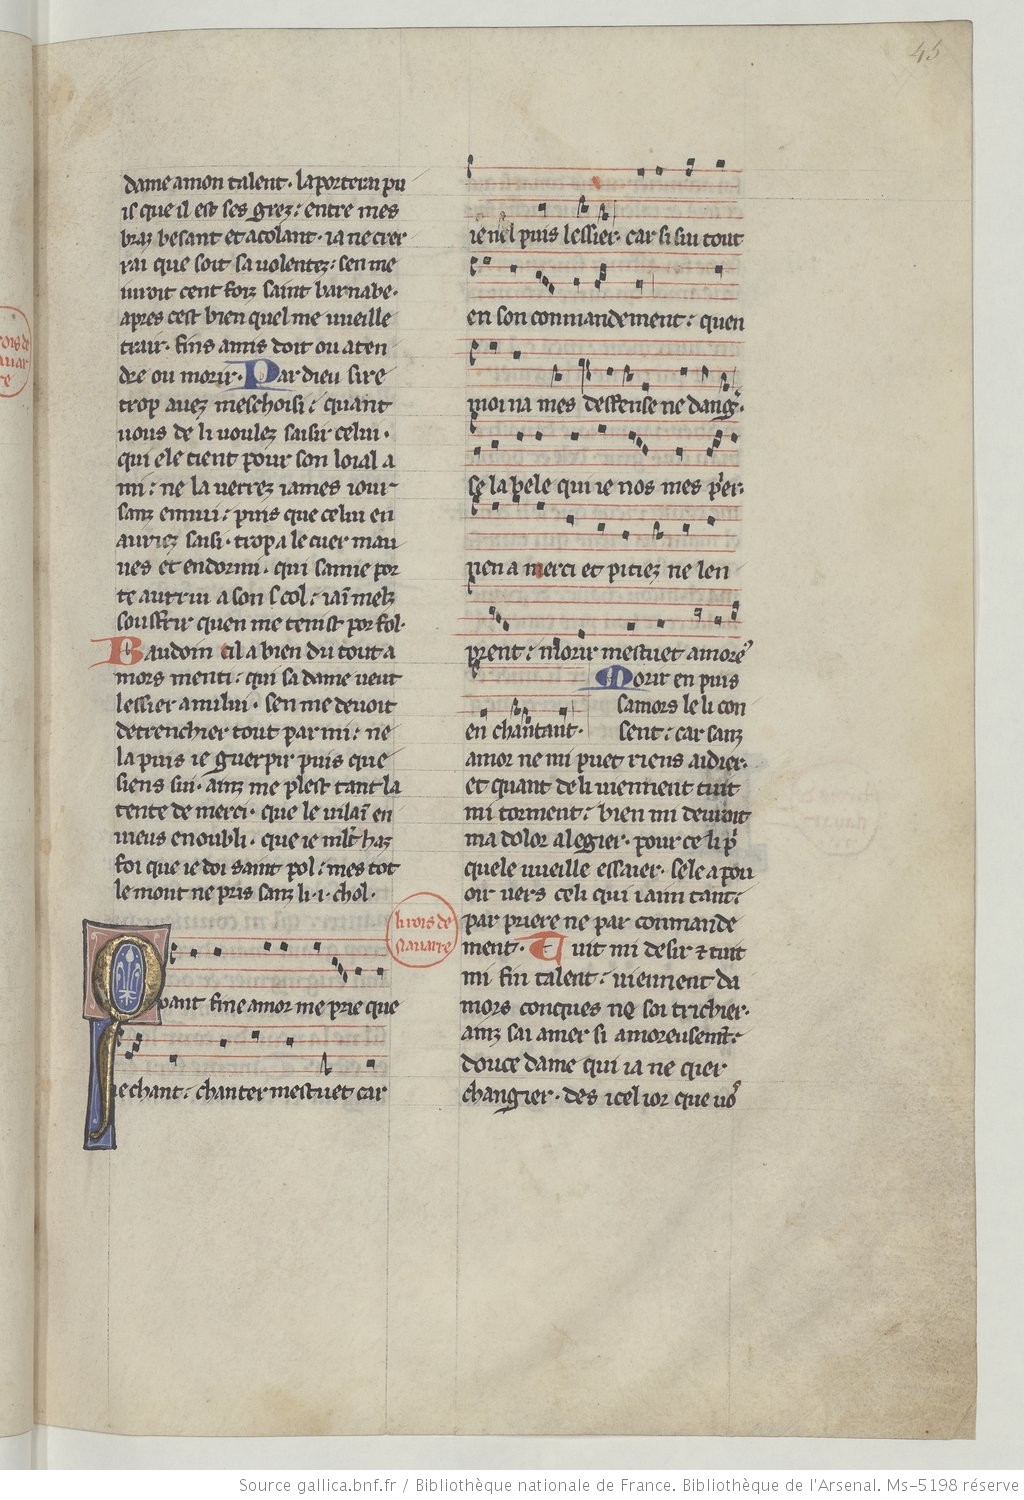 45
dame a mon talent. la portera pu
is que il est ses grez: entre mes
braz besant et acolant. ia ne crer
rai que soit sa uolentez: sen me
iuroit cent foiz saint barnabe.
apres cest bien quel me vueille
trair. fins amis doit ou aten
dre ou morir. Par dieu sire
trop auez mes choisi: quant
uous de li uoulez saisir celui.
qui ele tient pour son loial a
mi: ne la uerrez iames iour
sanz ennui: puis que celui en
auriez saisi. trop a le cuer mau
ues et endormi. qui samie por
te autrui a son col: iaim melz
souffrir quen me tenist por fol.
Baudoin cil a bien du tout a
mors menti: qui sa dame ueut
lessier a nului. sen me deuoit
detrenchier tout par mi: ne
la puis ie guerpir puis que
siens sui. ainz me plest tant la
tente de merci. que le uilain en
uieus en oubli. que ie mlt haz
foi que ie doi saint pol: mes tot
le mont ne pris sanz li .i. chol.
li rois de
nauarre
Quant fine amor me prie que
ie chant: chanter mestuet car
ie nel puis lessier. car si sui tout
en son conmandement: quen
moi na mes deffense ne dang.
se la bele qui ie nos mes per.
nen a merci et pitiez ne len
prent: morir mestuet amore
en chantant.
Morir en puis
samors le li con
sent: car sanz
amor ne mi puet riens aidier.
et quant de li uiennent tuit
mi torment: bien mi deuroit
ma dolor alegier. pour ce li pri
quele vueille essaier. sele a pou
oir uers celi qui iaim tant:
par priere ne par conmande
ment. Tuit mi desir et tuit
mi fin talent: uiennent da
mors conques ne soi trichier.
ainz sai amer si amoreusemt:
douce dame qui ia ne qier
changier. des icel ior que uos
Source gallica.bnf.fr / Bibliothèque nationale de France. Bibliothèque de l'Arsenal. Ms-5198 réserve